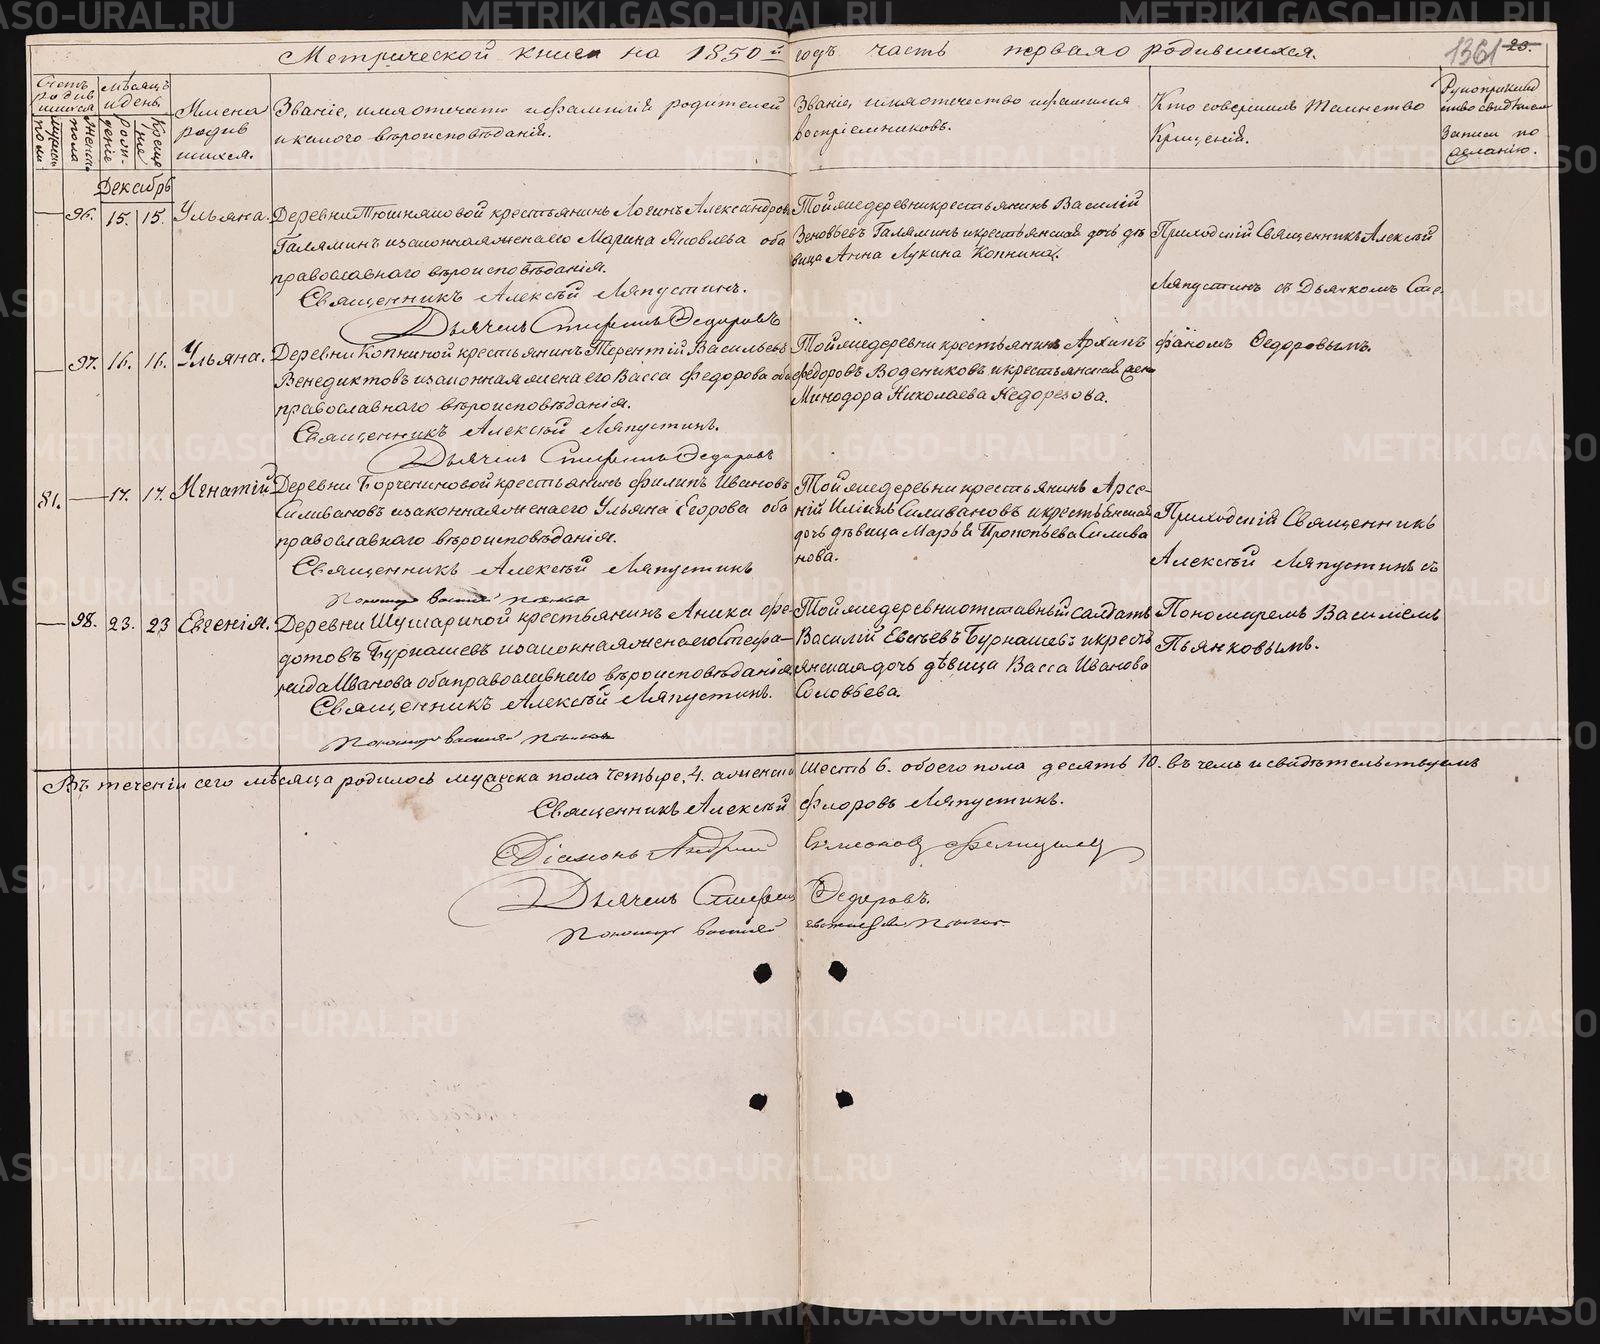 Метрической книги на 1850й годъ часть первая о родившихся.
1361 20.
Счетъ родившихся
мужеска пола
женска пола
Мѣсяцъ и день
рожденіе
креще­ніе
Имена родившихся.
Званіе, имя отечество и фамилія родителей
и какого вѣроисповѣданія.
Званіе, имя отечество и фамилия
воспріемниковъ.
Кто совершилъ Таинство
Крещенія.
Рукоприклад
ство свидѣтелей
записи по
желанію.
Декабрь
96. 15. 15. Ульяна.
Деревни Тюшняковой крестьянинъ Логинъ Александровъ
Галяминъ и законная жена его Марина Яковлева оба
православнаго вѣроисповѣданія.
Священникъ Алексѣй Ляпустинъ.
Дьячекъ Стефанъ Федоровъ
Той же деревни крестьянинъ Василій
Зеновьевъ Галяминъ и крестьянская дочь дѣ
вица Анна Лукина Копнина.
Приходскій Священникъ Алексѣй
Ляпустинъ съ Дьячкомъ Сте-
97. 16. 16. Ульяна.
Деревни Копниной крестьянинъ Терентій Васильевъ
Венедиктовъ и законная жена его Васса Федорова оба
православнаго вѣроисповѣданія.
Священникъ Алексѣй Ляпустинъ.
Дьячекъ Стефанъ Федоровъ
Той же деревни крестьянинъ Архипъ
Федоровъ Водениковъ и крестьянская жена
Минодора Николаева Недорезова.
фаномъ Федоровымъ.
81. 17. 17. Игнатій
Деревни крестьянинъ Филипъ Ивановъ
Силивановъ и законная жена его Ульяна Егорова оба
православнаго вѣроисповѣданія.
Священникъ Алексѣй Ляпустинъ
Пономарь Василій Пьянковъ
Той же деревни крестьянинъ Арсе-
ній Силивановъ и крестьянская
дочь дѣвица Марья Прокопьева Силива
нова.
Приходскій Священникъ
Алексѣй Ляпустинъ съ
98. 23. 23 Евгенія.
Деревни Шушариной крестьянинъ Аника Фе-
дотовъ Бурнашевъ и законная жена его Стефа-
нида Иванова оба православнаго вѣроисповѣданія
Священникъ Алексѣй Ляпустинъ.
Пономарь Василій Пьянковъ
Той же деревни отставный салдатъ
Василій Бурнашевъ и кресть
янская дочь дѣвица Васса Иванова
Соловьева.
Пономаремъ Василіемъ
Пьянковымъ.
Въ теченіи сего мѣсяца родилось мужеска пола четыре, 4. а женска шесть 6. обоего пола десять 10. въ чемъ и свидѣтельствуемъ
Священникъ Алексѣй Флоровъ Ляпустинъ.
Діаконъ Андрей Симеоновъ
Дьячекъ Стефанъ Федоровъ.
Пономарь Василій Пьянковъ
METRIKI.GASO-URAL.RU